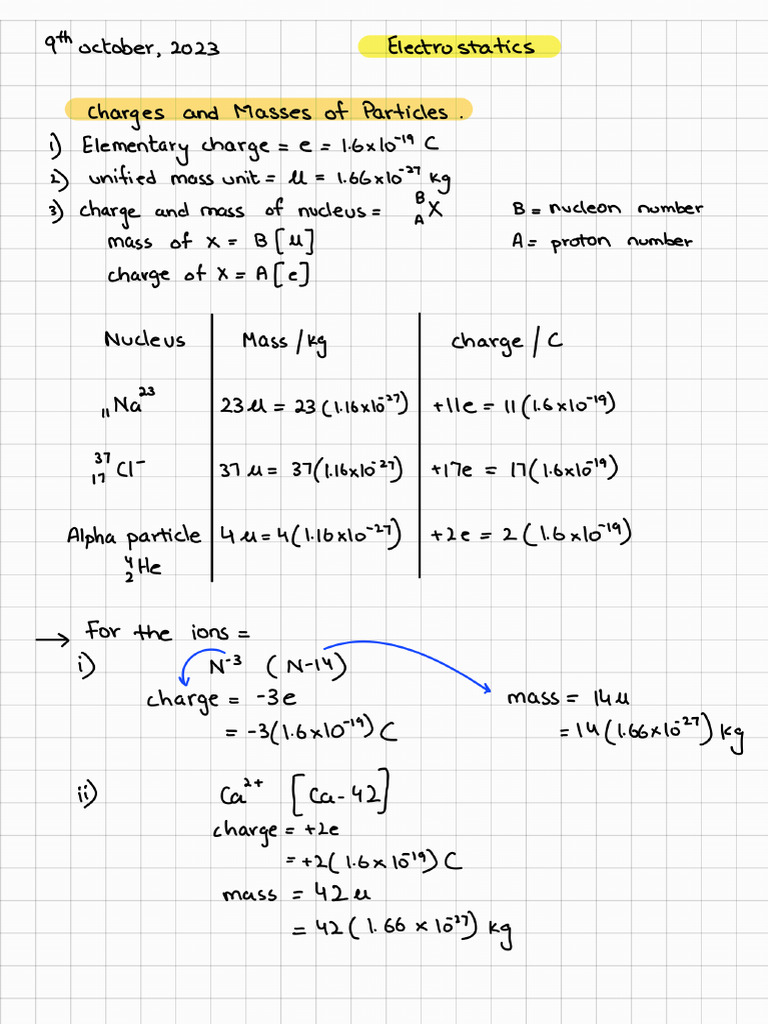 9th october, 2023 Electrostatics
Charges and Masses of Particles.
1) Elementary charge = e = 1.6x10⁻¹⁹ C
2) unified mass unit = u = 1.66x10⁻²⁷ kg
3) charge and mass of nucleus = ᴮ_A X B = nucleon number
mass of x = B[u] A = proton number
charge of X = A[e]
Nucleus Mass/kg charge/C
₁₁Na²³ 23u = 23(1.16x10⁻²⁷) +11e = 11(1.6x10⁻¹⁹)
³⁷₁₇Cl⁻ 37u = 37(1.16x10⁻²⁷) +17e = 17(1.6x10⁻¹⁹)
Alpha particle 4u = 4(1.16x10⁻²⁷) +2e = 2(1.6x10⁻¹⁹)
⁴₂He
→ For the ions =
i) N⁻³ (N-14)
charge = -3e mass = 14u
= -3(1.6x10⁻¹⁹) C = 14(1.66x10⁻²⁷) kg
ii) Ca²⁺ [Ca-42]
charge = +2e
= +2(1.6x10⁻¹⁹) C
mass = 42u
= 42(1.66x10⁻²⁷) kg